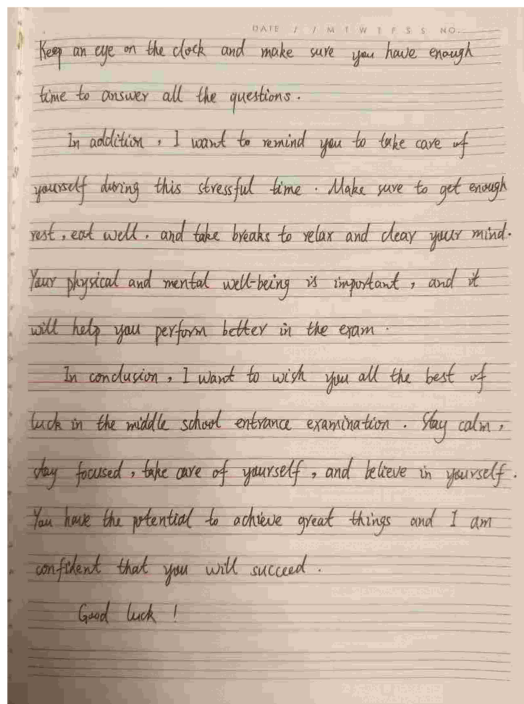 DATE / / M T W T F S S NO.
Keep an eye on the clock and make sure you have enough
time to answer all the questions.
In addition, I want to remind you to take care of
yourself during this stressful time. Make sure to get enough
rest, eat well. and take breaks to relax and clear your mind.
Your physical and mental well-being is important, and it
will help you perform better in the exam.
In conclusion, I want to wish you all the best of
luck in the middle school entrance examination. Stay calm,
stay focused, take care of yourself, and believe in yourself.
You have the potential to achieve great things and I am
confident that you will succeed.
Good luck!